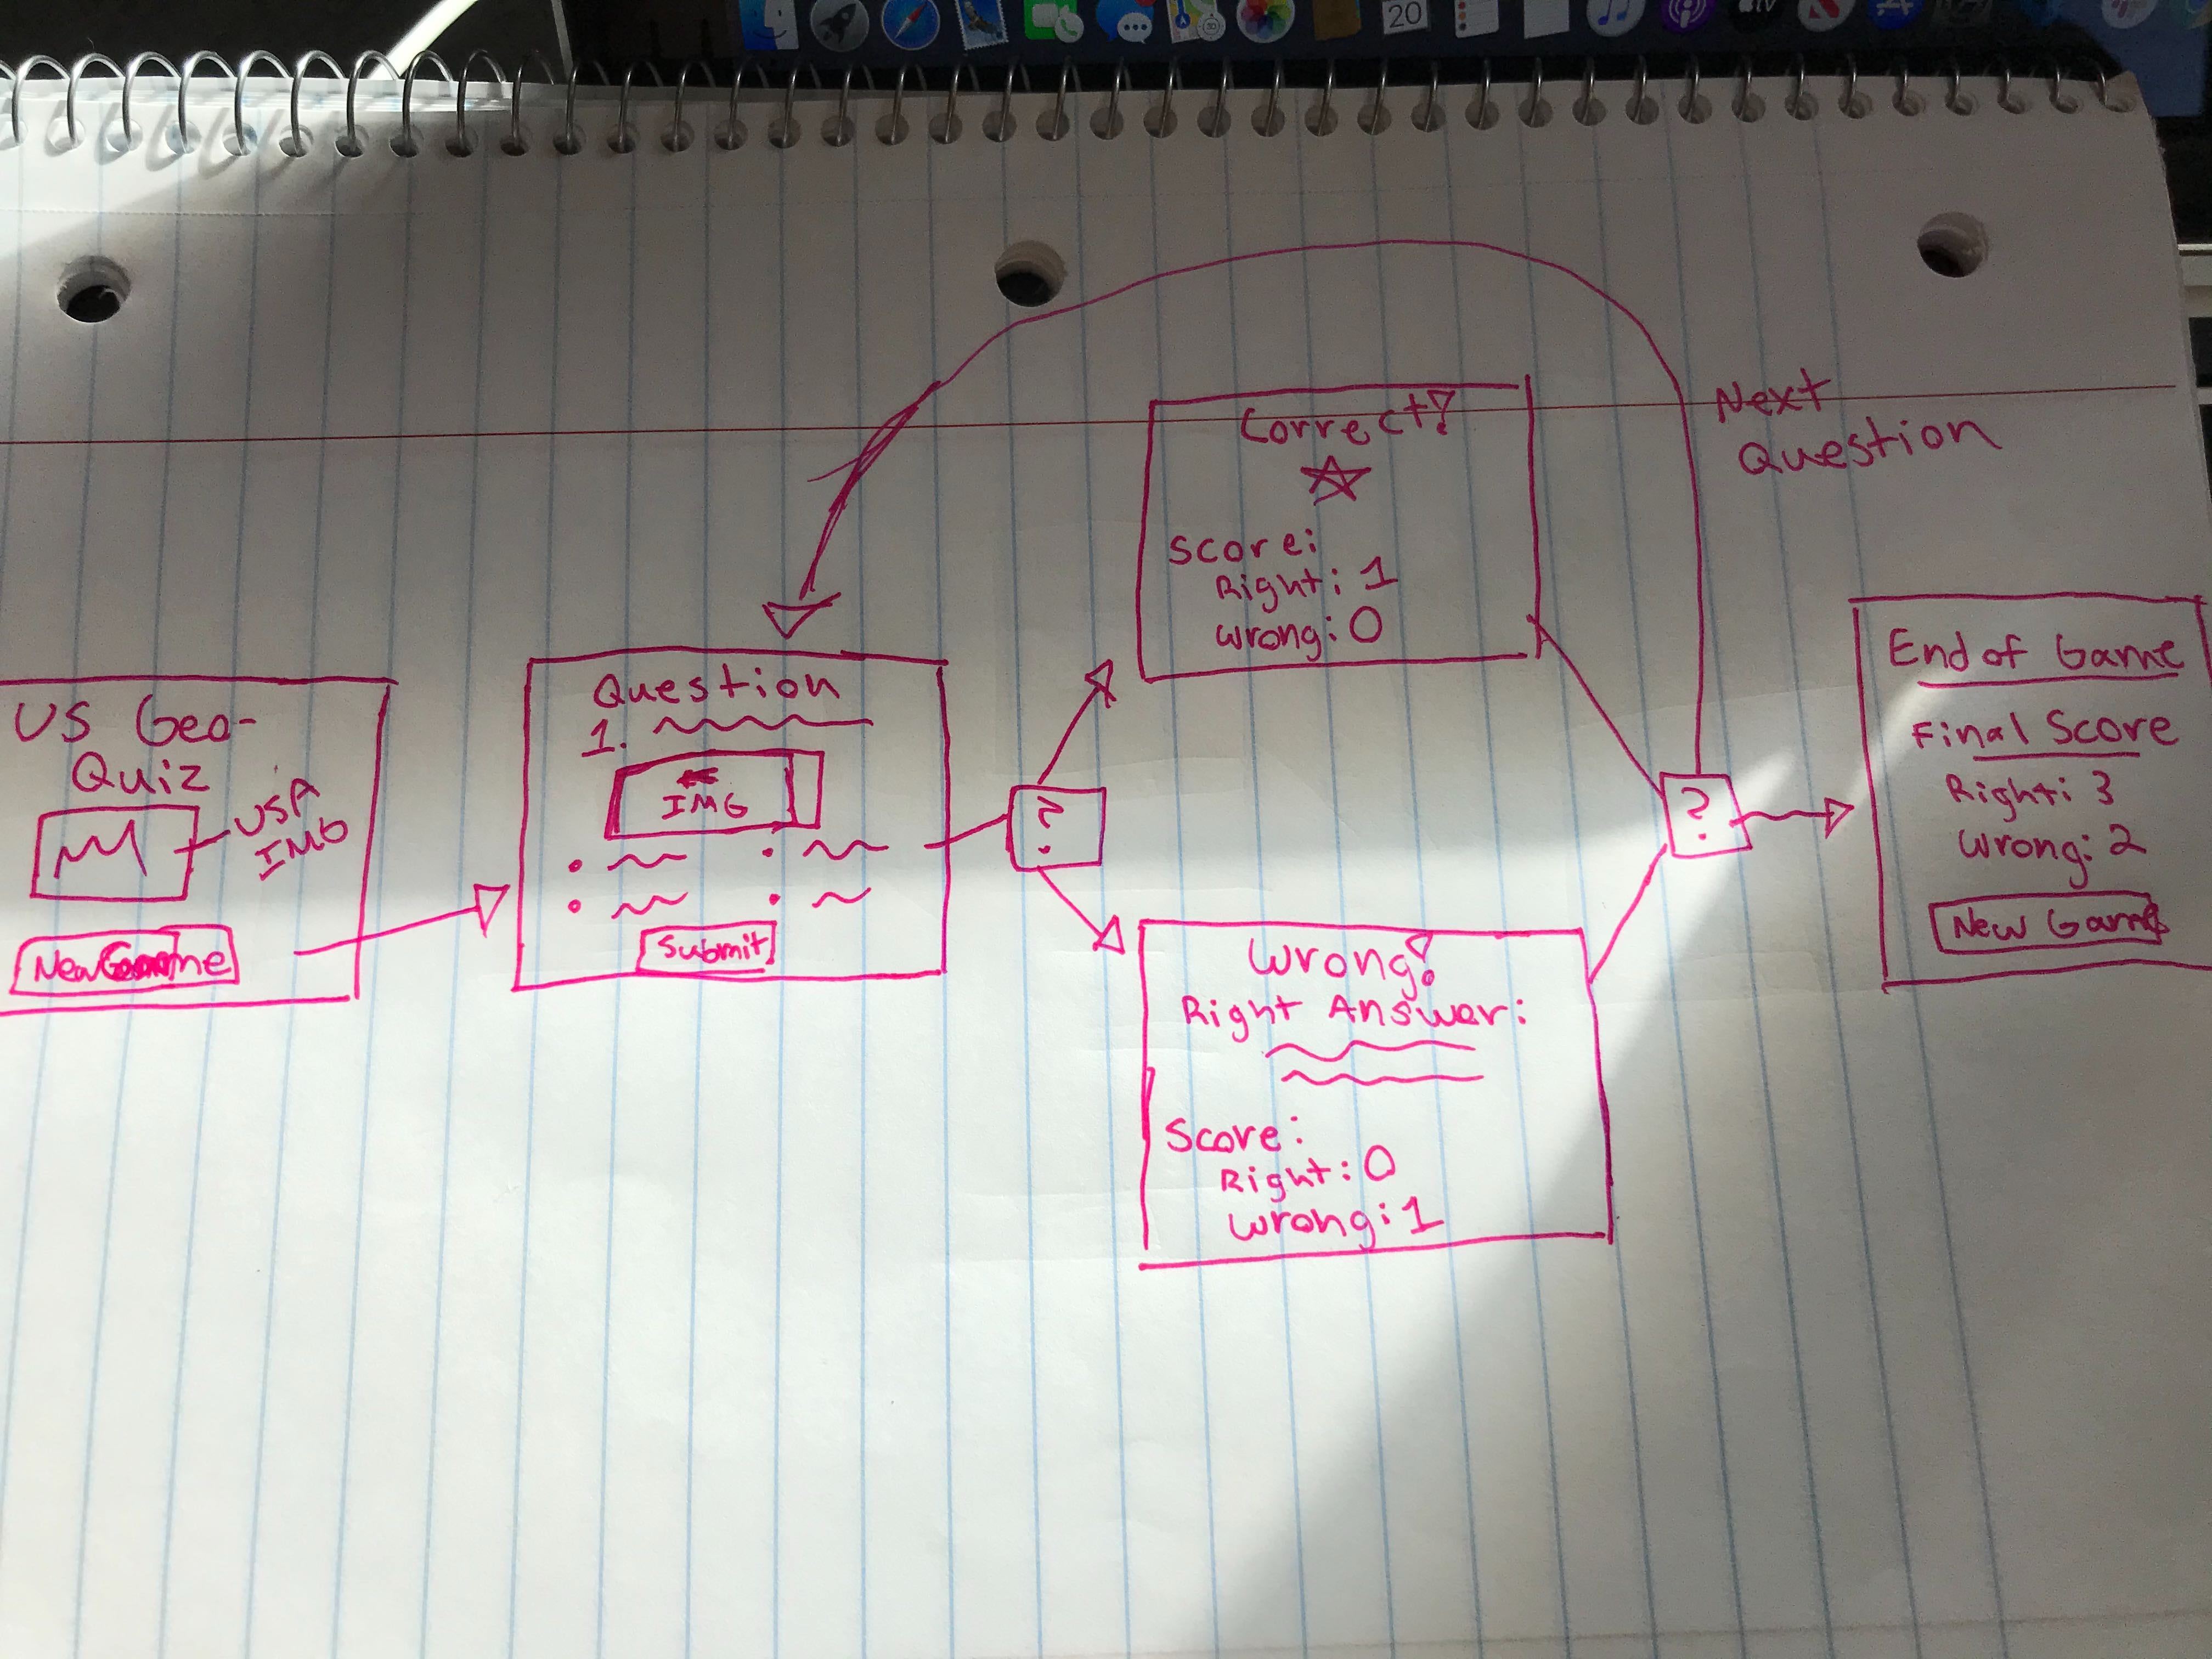 20
US Geo-
Quiz
USA
IMG
New Game
Question
1.
IMG
Submit
?
Correct!
Score:
Right: 1
Wrong: 0
Wrong!
Right Answer:
Score:
Right: 0
Wrong: 1
?
Next
Question
End of Game
Final Score
Right: 3
Wrong: 2
New Game